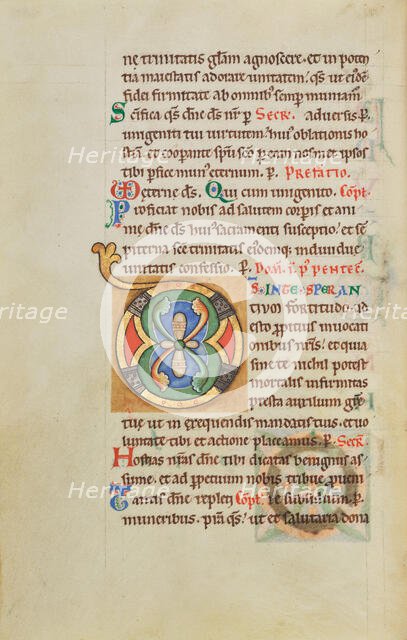 nę trinitatis gl̄am agnoscere. et in poten
tia maiestatis adorare unitatem. q̄s ut ei'dē
fidei firmitate ab omnib' semp muniam'.
Scifica q̄s dn̄e ds̄ nr̄ p Secr̄. adversis. P.
unigeniti tui virtutem hui' oblationis ho
stiā. et cooperante sp̄u sc̄o
tibi pfice mun' eternum. P. Prefatio.
eterne ds̄. Qui cum unigenito. Cōpl̄.
Proficiat nobis ad salutem corpis et ani
mę dn̄e ds̄ hui' sacramenti susceptio. et se
piterna scę trinitatis ei'demq; individuę
unitatis confessio. P. Dom̄. I. p' pentec̄.
DS INTE SPERAN
tium fortitudo. ad
esto ppitius invocati
onibus nr̄is. et quia
sine te nichil potest
mortalis infirmitas
presta auxilium grę
tuę ut in exequendis mandatis tuis. et vo
luntate tibi et actione placeamus. P. Secr̄.
Hostias nr̄as dn̄e tibi dicatas benignus as
sume. et ad ppetuum nobis tribue pvenire
Tantis dn̄e repleti Cōpl̄. subsidium. P.
muneribus. p̄ta q̄s'. ut et salutaria dona
Heritage
Heritage
Heritage
Heritage
Heritage
Heritage